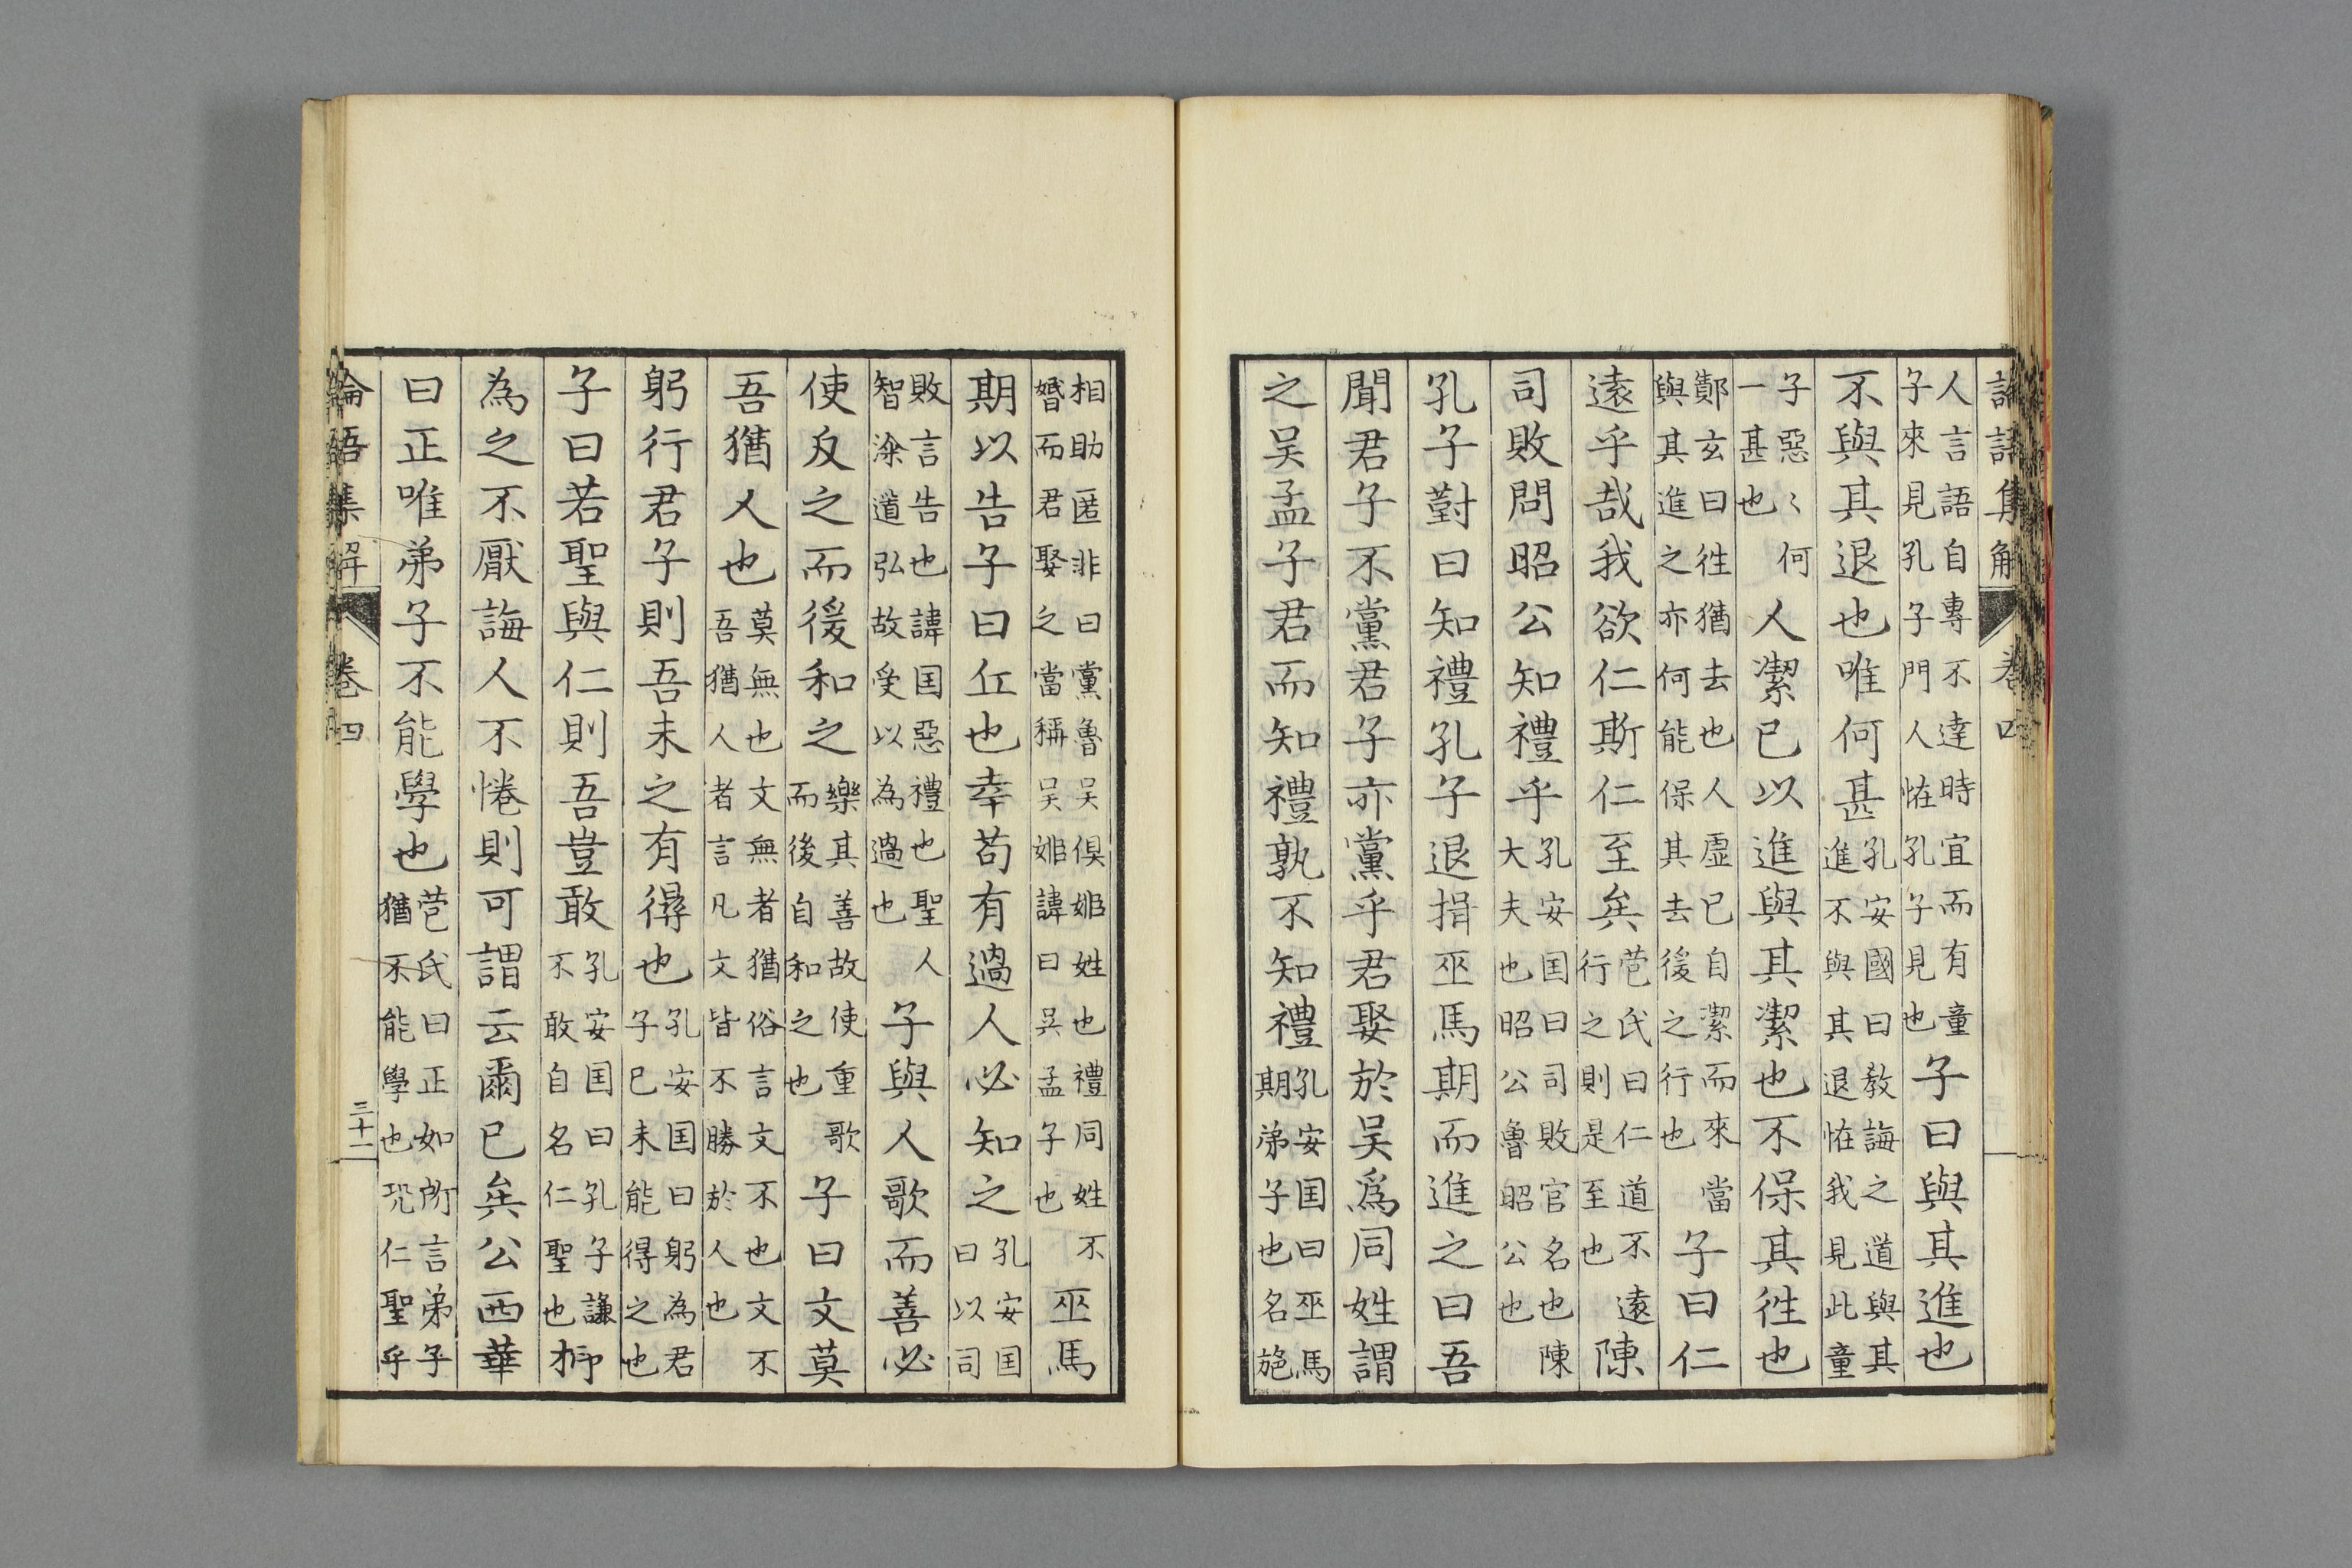 論語集解 卷四
人言語自專不達時宜而有童子來見孔子門人恠孔子見也子曰與其進也
不與其退也唯何甚孔安國曰教誨之道與其進不與其退恠我見此童
子惡〻何一甚也人潔已以進與其潔也不保其徃也
鄭玄曰徃猶去也人虛已自潔而來當與其進之亦何能保其去後之行也子曰仁
遠乎哉我欲仁斯仁至矣苞氏曰仁道不遠行之則是至也陳
司敗問昭公知禮乎孔安囯曰司敗官名也陳大夫也昭公魯昭公也
孔子對曰知禮孔子退揖巫馬期而進之曰吾
聞君子不黨君子亦黨乎君娶於吴爲同姓謂
之吴孟子君而知禮孰不知禮孔安囯曰巫馬期弟子也名施
相助匿非曰黨魯吴俱姬姓也禮同姓不婚而君娶之當稱吴姬諱曰吴孟子也巫馬
期以告子曰丘也幸苟有過人必知之孔安囯曰以司
敗言告也諱囯惡禮也聖人智深道弘故受以為過也子與人歌而善必
使反之而後和之樂其善故使重歌而後自和之也子曰文莫
吾猶人也莫無也文無者猶俗言文不也文不吾猶人者言凡文皆不勝於人也
躬行君子則吾未之有得也孔安囯曰躬為君子已未能得之也
子曰若聖與仁則吾豈敢孔安囯曰孔子謙不敢自名仁聖也抑
為之不厭誨人不惓則可謂云爾已矣公西華
曰正唯弟子不能學也苞氏曰正如所言弟子猶不能學也况仁聖乎
論語集解 卷四 三十一